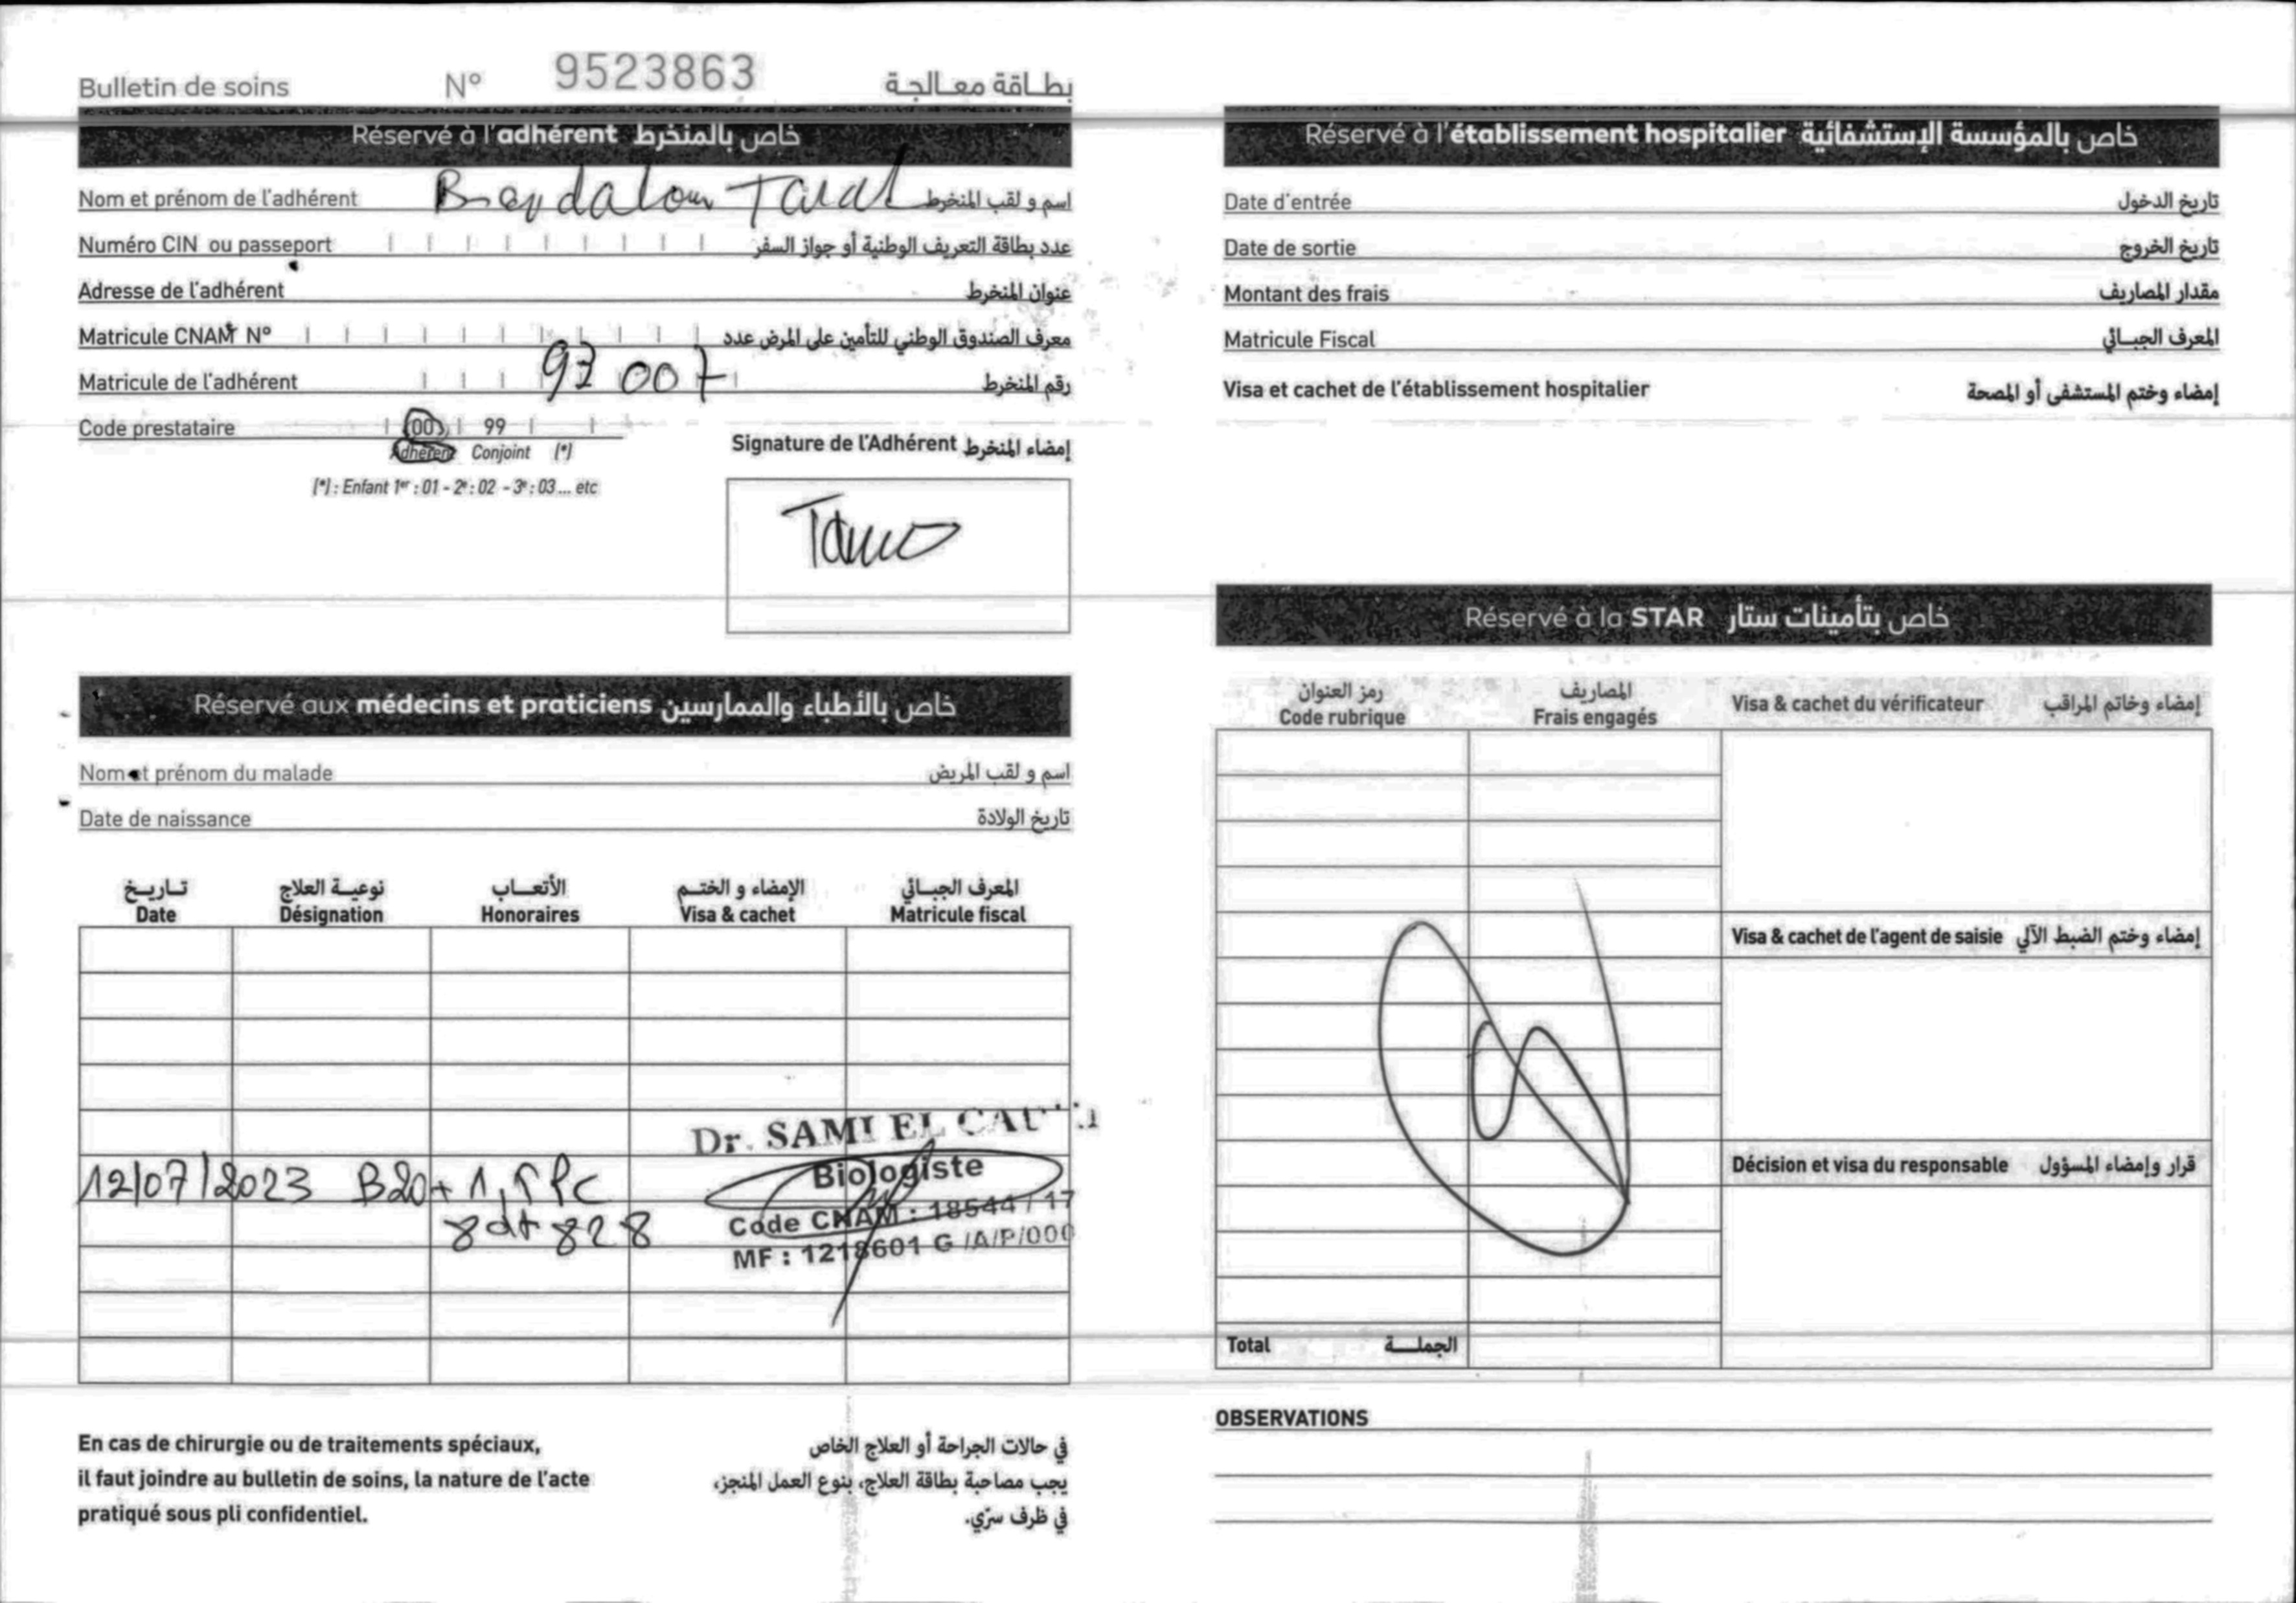 Bulletin de soins N° 9523863 بطاقة معالجة
Réservé à l'adhérent خاص بالمنخرط
Nom et prénom de l'adhérent اسم و لقب المنخرط
Numéro CIN ou passeport عدد بطاقة التعريف الوطنية أو جواز السفر
Adresse de l'adhérent عنوان المنخرط
Matricule CNAM N° معرف الصندوق الوطني للتأمين على المرض عدد
Matricule de l'adhérent 97 007 رقم المنخرط
Code prestataire 00 99
Adhérent Conjoint (*)
(*) : Enfant 1er : 01 - 2e : 02 - 3e : 03 ... etc
Signature de l'Adhérent إمضاء المنخرط
Réservé aux médecins et praticiens خاص بالأطباء والممارسين
Nom et prénom du malade اسم و لقب المريض
Date de naissance تاريخ الولادة
تاريخ نوعية العلاج الأتعاب الإمضاء و الختم المعرف الجبائي
Date Désignation Honoraires Visa & cachet Matricule fiscal
Dr. SAMI EL
12/07/2023 B20+ 1,5 PC Biologiste
8dt 828 Code CNAM : 18544 / 17
MF : 1218601 G /A/P/000
En cas de chirurgie ou de traitements spéciaux,
il faut joindre au bulletin de soins, la nature de l'acte
pratiqué sous pli confidentiel.
في حالات الجراحة أو العلاج الخاص
يجب مصاحبة بطاقة العلاج، بنوع العمل المنجز،
في ظرف سرّي.
Réservé à l'établissement hospitalier خاص بالمؤسسة الإستشفائية
Date d'entrée تاريخ الدخول
Date de sortie تاريخ الخروج
Montant des frais مقدار المصاريف
Matricule Fiscal المعرف الجبائي
Visa et cachet de l'établissement hospitalier إمضاء وختم المستشفى أو المصحة
Réservé à la STAR خاص بتأمينات ستار
رمز العنوان المصاريف
Code rubrique Frais engagés Visa & cachet du vérificateur إمضاء وخاتم المراقب
Visa & cachet de l'agent de saisie إمضاء وختم الضبط الآلي
Décision et visa du responsable قرار وإمضاء المسؤول
Total الجملة
OBSERVATIONS